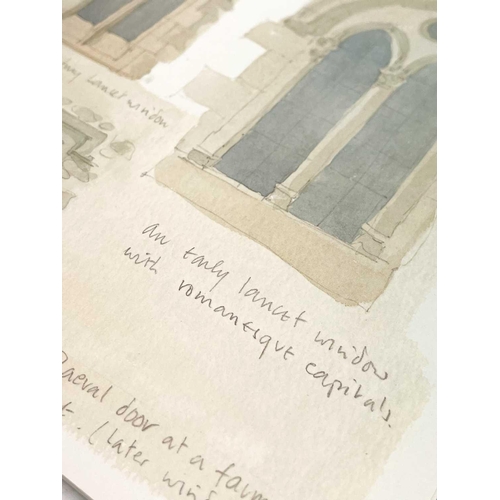 early lancet window
an early lancet window
with romanesque capitals.
door at a farm
(later